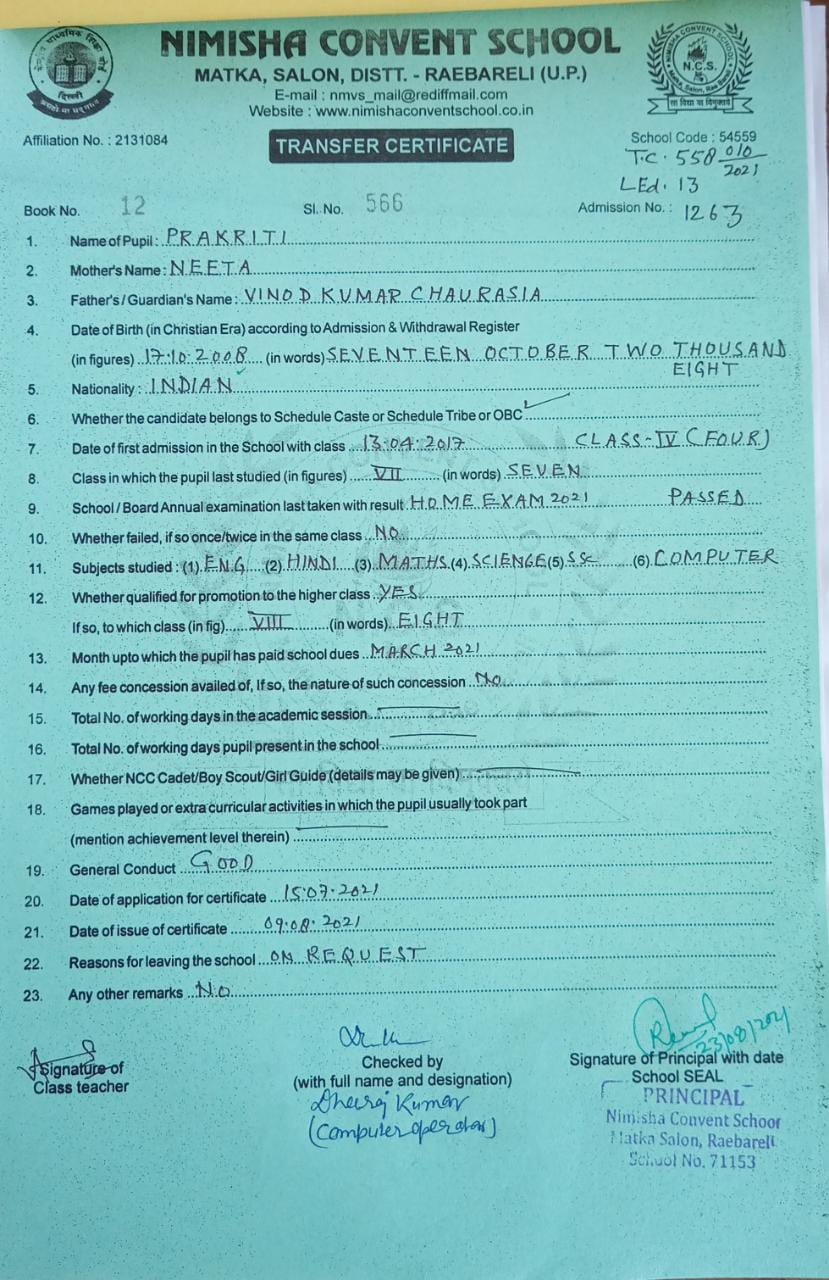 NIMISHA CONVENT SCHOOL
MATKA, SALON, DISTT. - RAEBARELI (U.P.)
E-mail : nmvs_mail@rediffmail.com
Website : www.nimishaconventschool.co.in
N.C.S.
Affiliation No. : 2131084
School Code : 54559
TRANSFER CERTIFICATE
T.C. 558 010/2021
LEd. 13
Book No. 12 Sl. No. 566 Admission No. : 1263
1. Name of Pupil : PRAKRITI
2. Mother's Name : NEETA
3. Father's / Guardian's Name : VINOD KUMAR CHAURASIA
4. Date of Birth (in Christian Era) according to Admission & Withdrawal Register
(in figures) 17.10.2008 (in words) SEVENTEEN OCTOBER TWO THOUSAND
EIGHT
5. Nationality : INDIAN
6. Whether the candidate belongs to Schedule Caste or Schedule Tribe or OBC ✓
7. Date of first admission in the School with class 13.04.2017 CLASS-IV (FOUR)
8. Class in which the pupil last studied (in figures) VII (in words) SEVEN
9. School / Board Annual examination last taken with result HOME EXAM 2021 PASSED
10. Whether failed, if so once/twice in the same class NO
11. Subjects studied : (1) ENG (2) HINDI (3) MATHS (4) SCIENCE (5) SSc (6) COMPUTER
12. Whether qualified for promotion to the higher class YES
If so, to which class (in fig) VIII (in words) EIGHT
13. Month upto which the pupil has paid school dues MARCH 2021
14. Any fee concession availed of, If so, the nature of such concession No
15. Total No. of working days in the academic session
16. Total No. of working days pupil present in the school
17. Whether NCC Cadet/Boy Scout/Girl Guide (details may be given)
18. Games played or extra curricular activities in which the pupil usually took part
(mention achievement level therein)
19. General Conduct GOOD
20. Date of application for certificate 15.07.2021
21. Date of issue of certificate 09.08.2021
22. Reasons for leaving the school ON REQUEST
23. Any other remarks NO
23/08/2021
Signature of
Class teacher
Checked by
(with full name and designation)
Dheeraj Kumar
(Computer operator)
Signature of Principal with date
School SEAL
PRINCIPAL
Nimisha Convent School
Matka Salon, Raebareli
School No. 71153